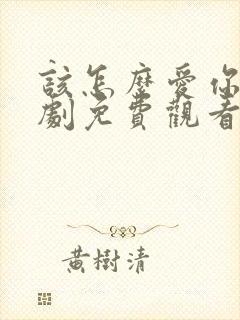 該怎麼愛你
劇免費觀看
黃樹清